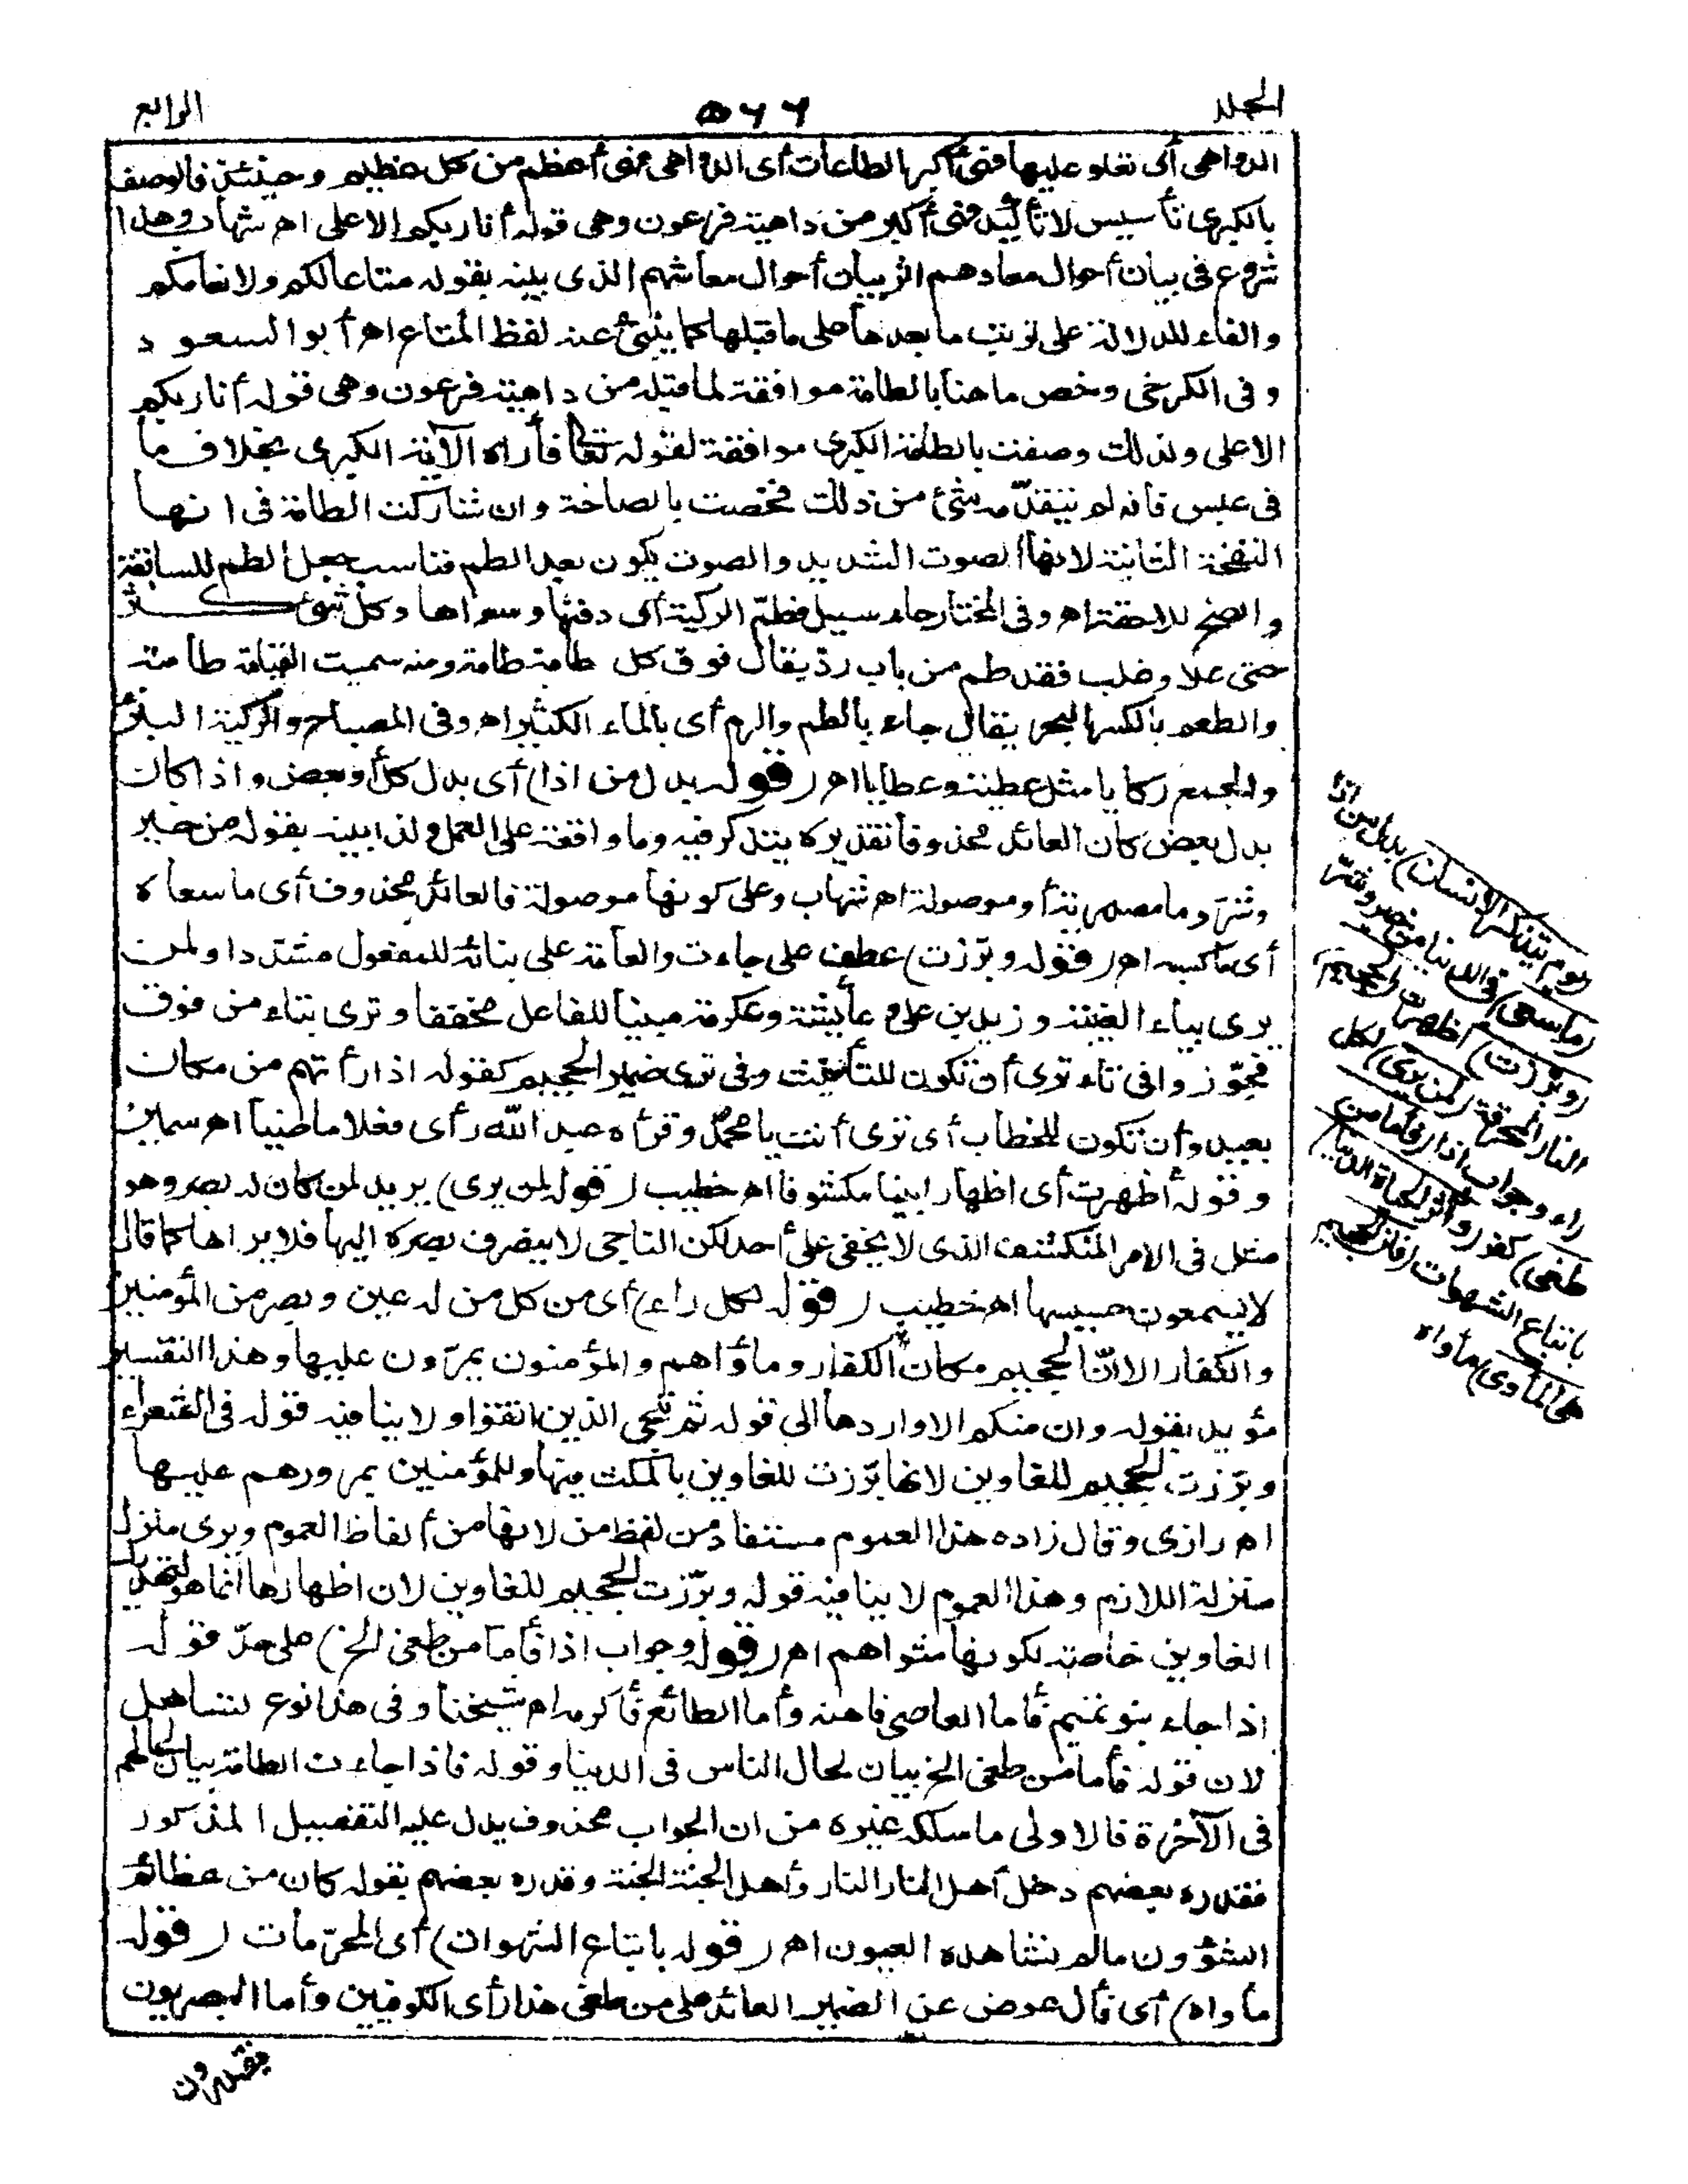 المجلد
٥٦٦
الرابع
الدواهى أى تعلو عليها فهى أكبر الطامات أى الدواهى فهى أعظم من كل عظيم وحينئذ فالوصف
بالكبرى تأسيس لا تأكيد فهى أكبر من داهية فرعون وهى قوله أنا ربكم الاعلى اهـ شهاب وهذا
شروع فى بيان أحوال معادهم اثر بيان أحوال معاشهم الذى بينه بقوله متاعا لكم ولانعامكم
والفاء للدلالة على ترتب ما بعدها على ما قبلها كما ينبئ عنه لفظ المتاع اهـ أبو السعود
وفى الكرخى وخص ما هنا بالطامة موافقة لما قبله من داهية فرعون وهى قوله أنا ربكم
الاعلى ولذلك وصفت بالطامة الكبرى موافقة لقوله تعالى فأراه الآية الكبرى بخلاف ما
فى عبس فانه لم يتقدّمه شئ من ذلك فخصت بالصاخة وان شاركت الطامة فى انها
النفخة الثانية لانها الصوت الشديد والصوت يكون بعد الطم فناسب جعل الطم للسابقة
والصخ للاحقة اهـ وفى المختار جاء سيل فطمّ الركية أى دفنها وسواها وكل شئ كثر
حتى علا وغلب فقد طم من باب ردّ يقال فوق كل طامة طامة ومنه سميت القيامة طامة
والطم بالكسر البحر يقال جاء بالطم والرم أى بالماء الكثير اهـ وفى المصباح والركية البئر
والجمع ركايا مثل عطية وعطايا اهـ (قوله بدل من اذا) أى بدل كل أو بعض واذا كان
بدل بعض كان العائد محذوفا تقديره يتذكر فيه وما واقعة على العمل ولذا بينه بقوله من خير
وشرّ وما مصدرية أو موصولة اهـ شهاب وعلى كونها موصولة فالعائد محذوف أى ما سعاه
أى ما كسبه اهـ (قوله وبرّزت) عطف على جاءت والعامّة على بنائه للمفعول مشدّدا ولمن
يرى بياء الغيبة وزيد بن على وعائشة وعكرمة مبنيا للفاعل مخففا وترى بتاء من فوق
فجوّزوا فى تاء ترى أن تكون للتأنيث وفى ترى ضمير الجحيم كقوله اذا رأتهم من مكان
بعيد وأن تكون للخطاب أى ترى أنت يا محمد وقرأه عبد الله رأى فعلا ماضيا اهـ سمين
وقوله أظهرت أى اظهارا بينا مكشوفا اهـ خطيب (قوله لمن يرى) يريد لمن كان له بصر وهو
مثل فى الامر المنكشف الذى لا يخفى على أحد لكن الناجى لا ينصرف بصره اليها فلا يراها كما قال
لا يسمعون حسيسها اهـ خطيب (قوله لكل راء) أى من كل من له عين وبصر من المؤمنين
والكفار الا انّ الجحيم مكان الكفار ومأواهم والمؤمنون يمرّون عليها وهذا التفسير
مؤيد بقوله وان منكم الا واردها الى قوله ثم ننجى الذين اتقوا ولا ينافيه قوله فى الشعراء
وبرّزت الجحيم للغاوين لانها برّزت للغاوين بالمكث فيها وللمؤمنين بمرورهم عليها
اهـ رازى وقال زاده هذا العموم مستفاد من لفظ من لانها من ألفاظ العموم ويرى منزل
منزلة اللازم وهذا العموم لا ينافيه قوله وبرّزت الجحيم للغاوين لان اظهارها انما هو لتهديد
الغاوين خاصة لكونها مثواهم اهـ (قوله وجواب اذا فأما من طغى الخ) على حدّ قوله
اذا جاء بنو تميم فأما العاصى فأهنه وأما الطائع فأكرمه اهـ شيخنا وفى هذا نوع تساهل
لان قوله فأما من طغى الخ بيان لحال الناس فى الدنيا وقوله فاذا جاءت الطامة بيان لحالهم
فى الآخرة فالاولى ما سلكه غيره من ان الجواب محذوف يدل عليه التفصيل المذكور
فقدره بعضهم دخل أهل النار النار وأهل الجنة الجنة وقدره بعضهم بقوله كان من عظائم
الشؤون ما لم تشاهده العيون اهـ (قوله باتباع الشهوات) أى المحرّمات (قوله
مأواه) أى فأل عوض عن الضمير العائد على من طغى هذا رأى الكوفيين وأما البصريون
فيقدرون
(يوم يتذكر الانسان) بدل من اذا
(ما سعى) فى الدنيا من خير وشرّ
(وبرّزت) أظهرت (الجحيم)
النار المحرقة (لمن يرى) لكل
راء وجواب اذا (فأما من
طغى) كفر (وآثر الحياة الدنيا)
باتباع الشهوات (فان الجحيم
هى المأوى) مأواه